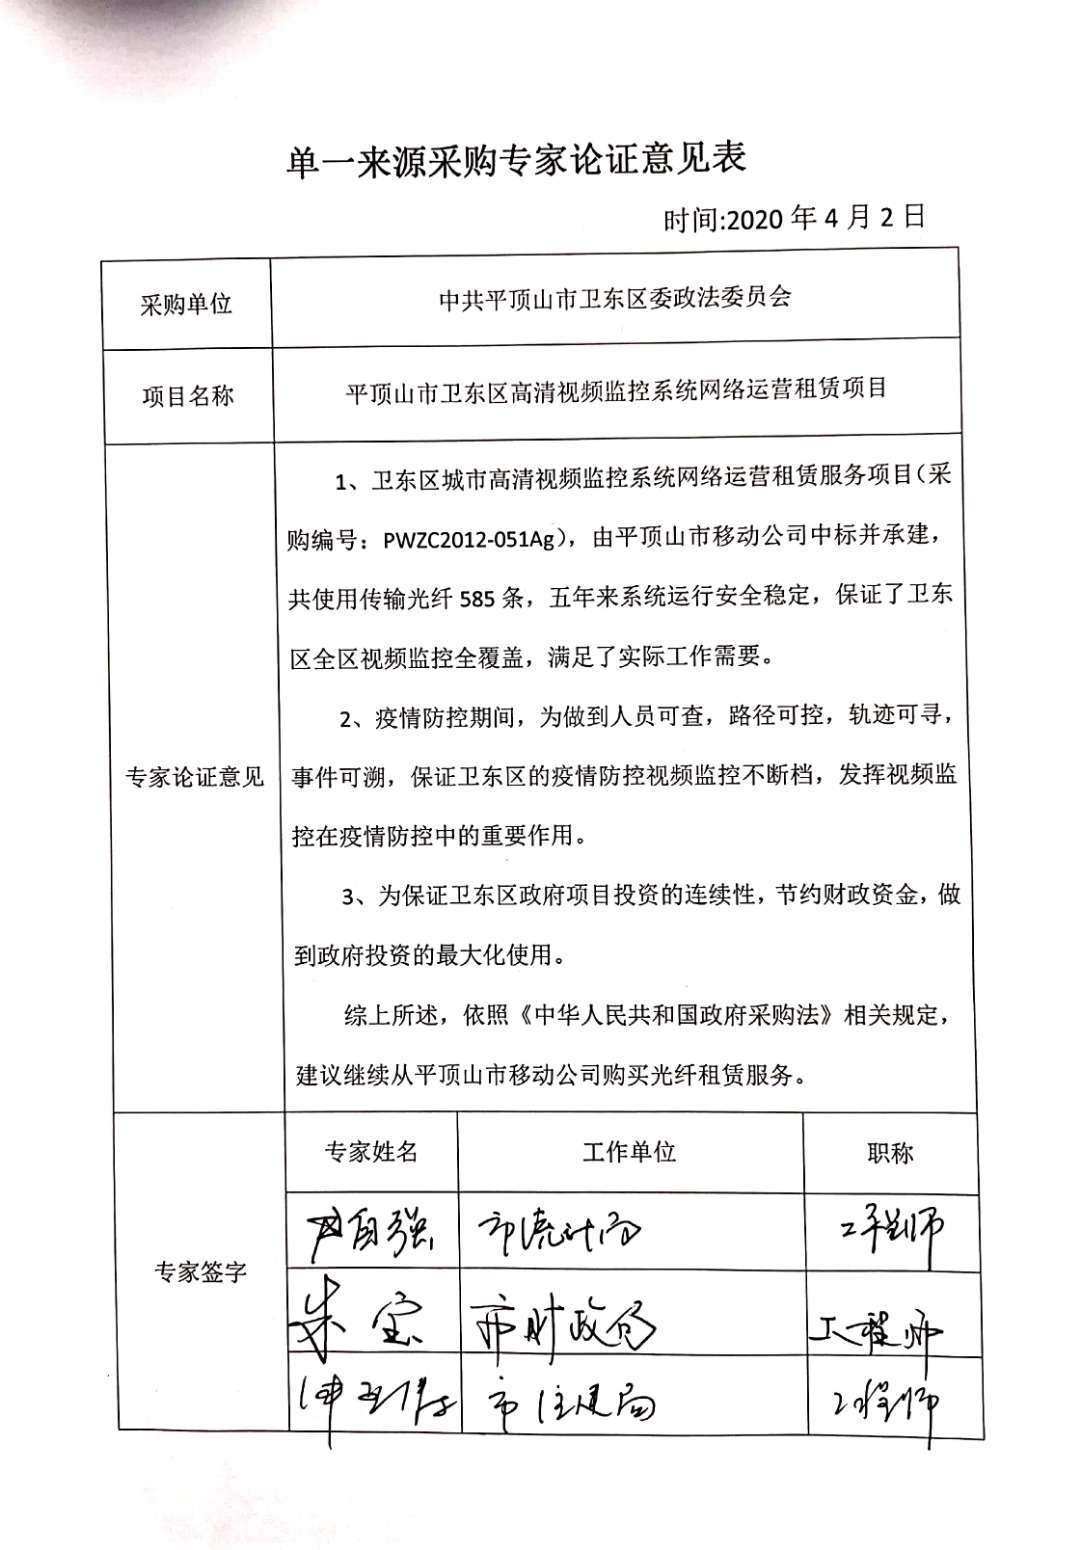 单一来源采购专家论证意见表
时间:2020 年 4 月 2 日
采购单位
中共平顶山市卫东区委政法委员会
项目名称
平顶山市卫东区高清视频监控系统网络运营租赁项目
专家论证意见
1、卫东区城市高清视频监控系统网络运营租赁服务项目（采
购编号：PWZC2012-051Ag），由平顶山市移动公司中标并承建，
共使用传输光纤 585 条，五年来系统运行安全稳定，保证了卫东
区全区视频监控全覆盖，满足了实际工作需要。
2、疫情防控期间，为做到人员可查，路径可控，轨迹可寻，
事件可溯，保证卫东区的疫情防控视频监控不断档，发挥视频监
控在疫情防控中的重要作用。
3、为保证卫东区政府项目投资的连续性，节约财政资金，做
到政府投资的最大化使用。
综上所述，依照《中华人民共和国政府采购法》相关规定，
建议继续从平顶山市移动公司购买光纤租赁服务。
专家签字
专家姓名 工作单位 职称
自强 市统计局 工程师
朱宝 市财政局 工程师
市住建局 工程师